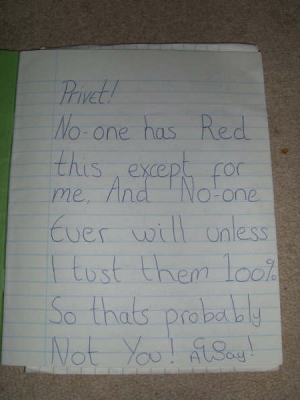 Privet!
No-one has Red
this except for
me, And No-one
Ever will unless
I tust them 100%
So thats probably
Not You! AWay!